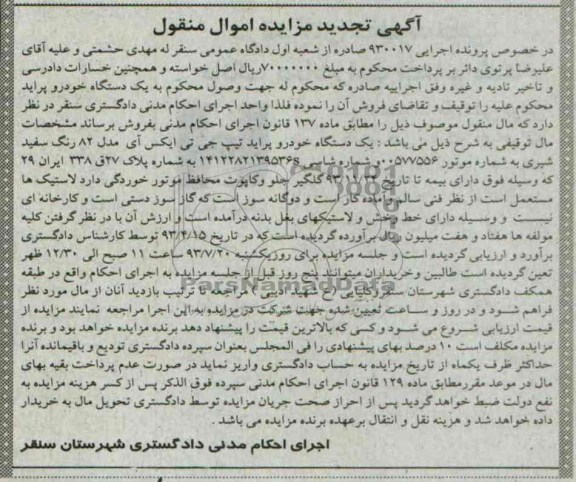 آگهی تجدید مزایده اموال منقول
در خصوص پرونده اجرایی ۹۳۰۰۱۷ صادره از شعبه اول دادگاه عمومی سنقر له مهدی حشمتی و علیه آقای
علیرضا پرتوی دائر بر پرداخت محکوم به مبلغ ۷۰۰۰۰۰۰۰ریال اصل خواسته و همچنین خسارات دادرسی
و تاخیر تادیه و غیره وفق اجراییه صادره که محکوم له جهت وصول محکوم به یک دستگاه خودرو پراید
محکوم علیه را توقیف و تقاضای فروش آن را نموده فلذا واحد اجرای احکام مدنی دادگستری سنقر در نظر
دارد که مال منقول موصوف ذیل را مطابق ماده ۱۳۷ قانون اجرای احکام مدنی بفروش برساند مشخصات
مال توقیفی به شرح ذیل می باشد : یک دستگاه خودرو پراید تیپ جی تی ایکس آی مدل ۸۲ رنگ سفید
شیری به شماره موتور ۰۰۵۷۷۵۵۶و شماره شاسی s۱۴۱۲۲۸۲۱۳۹۵۳۶ به شماره پلاک ۲۷ق ۳۳۸ ایران ۲۹
که وسیله فوق دارای بیمه تا تاریخ گلگیر جلو وکاپوت محافظ موتور خوردگی دارد لاستیک ها
مستعمل است از نظر فنی سالم و آماده کار است و دوگانه سوز است که گاز سوز دستی است و کارخانه ای
نیست و وسیله دارای خط و خش و لاستیکهای بغل بدنه درآمده است و ارزش آن با در نظر گرفتن کلیه
مولفه ها هفتاد و هفت میلیون ریال برآورده گردیده است که در تاریخ ۹۳/۴/۱۵ توسط کارشناس دادگستری
برآورد و ارزیابی گردیده است و جلسه مزایده برای روزیکشنبه ۹۳/۷/۲۰ ساعت ۱۱ صبح الی ۱۲/۳۰ ظهر
تعین گردیده است طالبین وخریداران میتوانند پنج روز قبل از جلسه مزایده به اجرای احکام واقع در طبقه
همکف دادگستری شهرستان سنقروکلیایی (خ شهید ادیبی ) مراجعه تا ترتیب بازدید آنان از مال مورد نظر
فراهم شود و در روز و ساعت تعیین شده جهت شرکت در مزایده به این اجرا مراجعه نمایند مزایده از
قیمت ارزیابی شروع می شود و کسی که بالاترین قیمت را پیشنهاد دهد برنده مزایده خواهد بود و برنده
مزایده مکلف است ۱۰ درصد بهای پیشنهادی را فی المجلس بعنوان سپرده دادگستری تودیع و باقیمانده آنرا
حداکثر ظرف یکماه از تاریخ مزایده به حساب دادگستری واریز نماید در صورت عدم پرداخت بقیه بهای
مال در موعد مقررمطابق ماده ۱۲۹ قانون اجرای احکام مدنی سپرده فوق الذکر پس از کسر هزینه مزایده به
نفع دولت ضبط خواهد گردید پس از احراز صحت جریان مزایده توسط دادگستری تحویل مال به خریدار
داده خواهد شد و هزینه نقل و انتقال برعهده برنده مزایده می باشد .
اجرای احکام مدنی دادگستری شهرستان سنقر
ParsNamadData